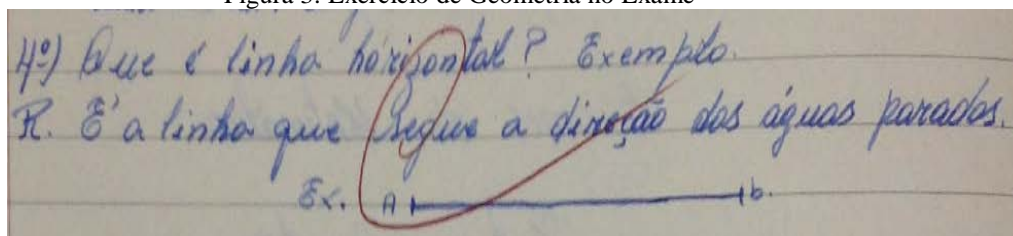 Figura 3: Exercício de Geometria no Exame
4º) Que é linha horizontal? Exemplo.
R. É a linha que segue a direção das águas paradas.
Ex. A b.